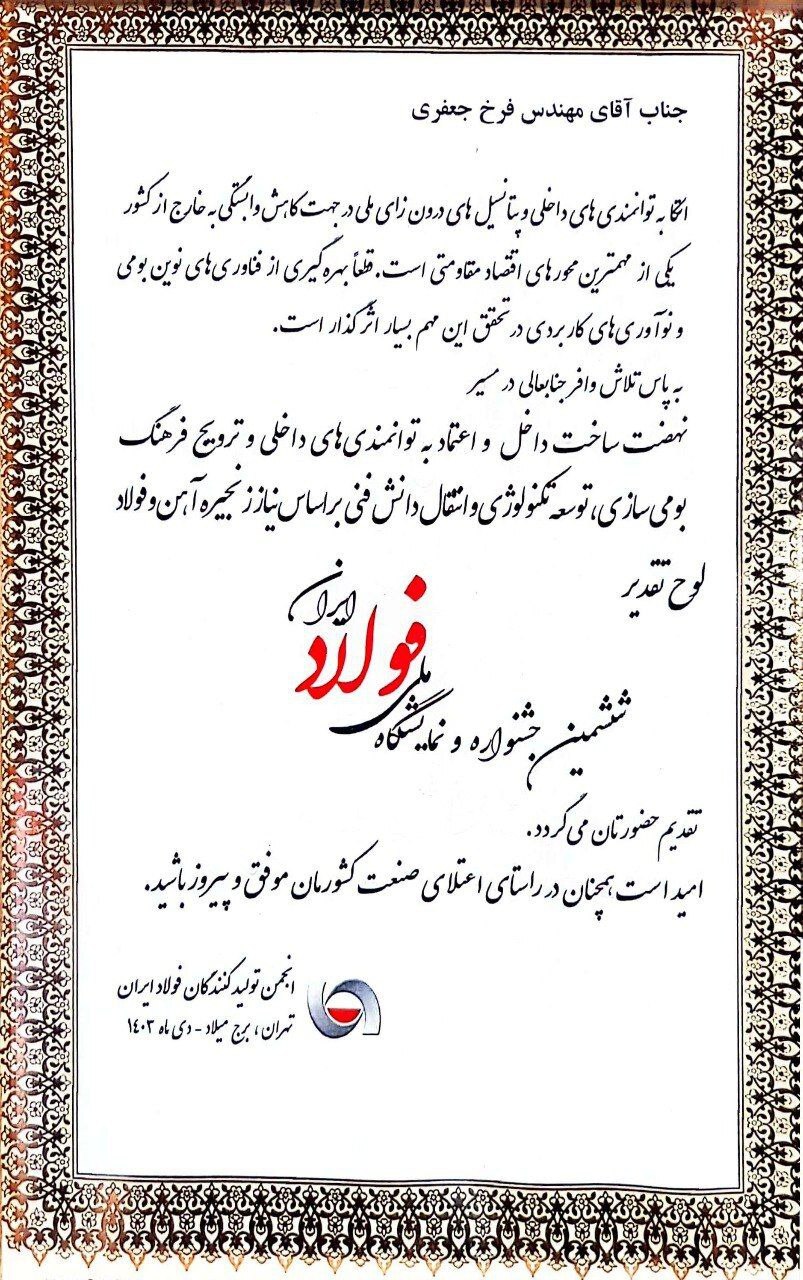 جناب آقای مهندس فرخ جعفری
اتکا به توانمندی های داخلی و پتانسیل های درون زای ملی در جهت کاهش وابستگی به خارج از کشور
یکی از مهمترین محورهای اقتصاد مقاومتی است. قطعاً بهره گیری از فناوری‌های نوین بومی
و نوآوری‌های کاربردی در تحقق این مهم بسیار اثرگذار است.
به پاس تلاش وافر جنابعالی در مسیر
نهضت ساخت داخل و اعتماد به توانمندی‌های داخلی و ترویج فرهنگ
بومی سازی، توسعه تکنولوژی و انتقال دانش فنی بر اساس نیاز زنجیره آهن و فولاد
لوح تقدیر
ششمین جشنواره و نمایشگاه ملی فولاد ایران
تقدیم حضورتان می گردد.
امید است همچنان در راستای اعتلای صنعت کشورمان موفق و پیروز باشید.
انجمن تولید کنندگان فولاد ایران
تهران، برج میلاد - دی ماه ۱۴۰۳